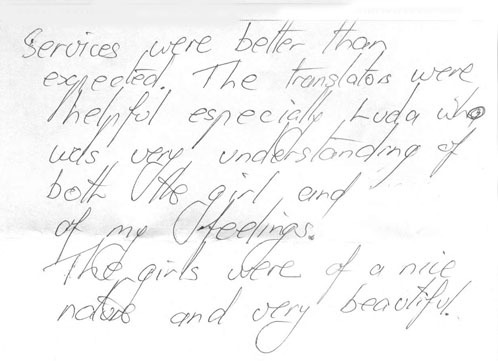 Services were better than
expected. The translators were
helpful especially Luda who
was very understanding of
both the girl and
of my feelings.
The girls were of a nice
nature and very beautiful.